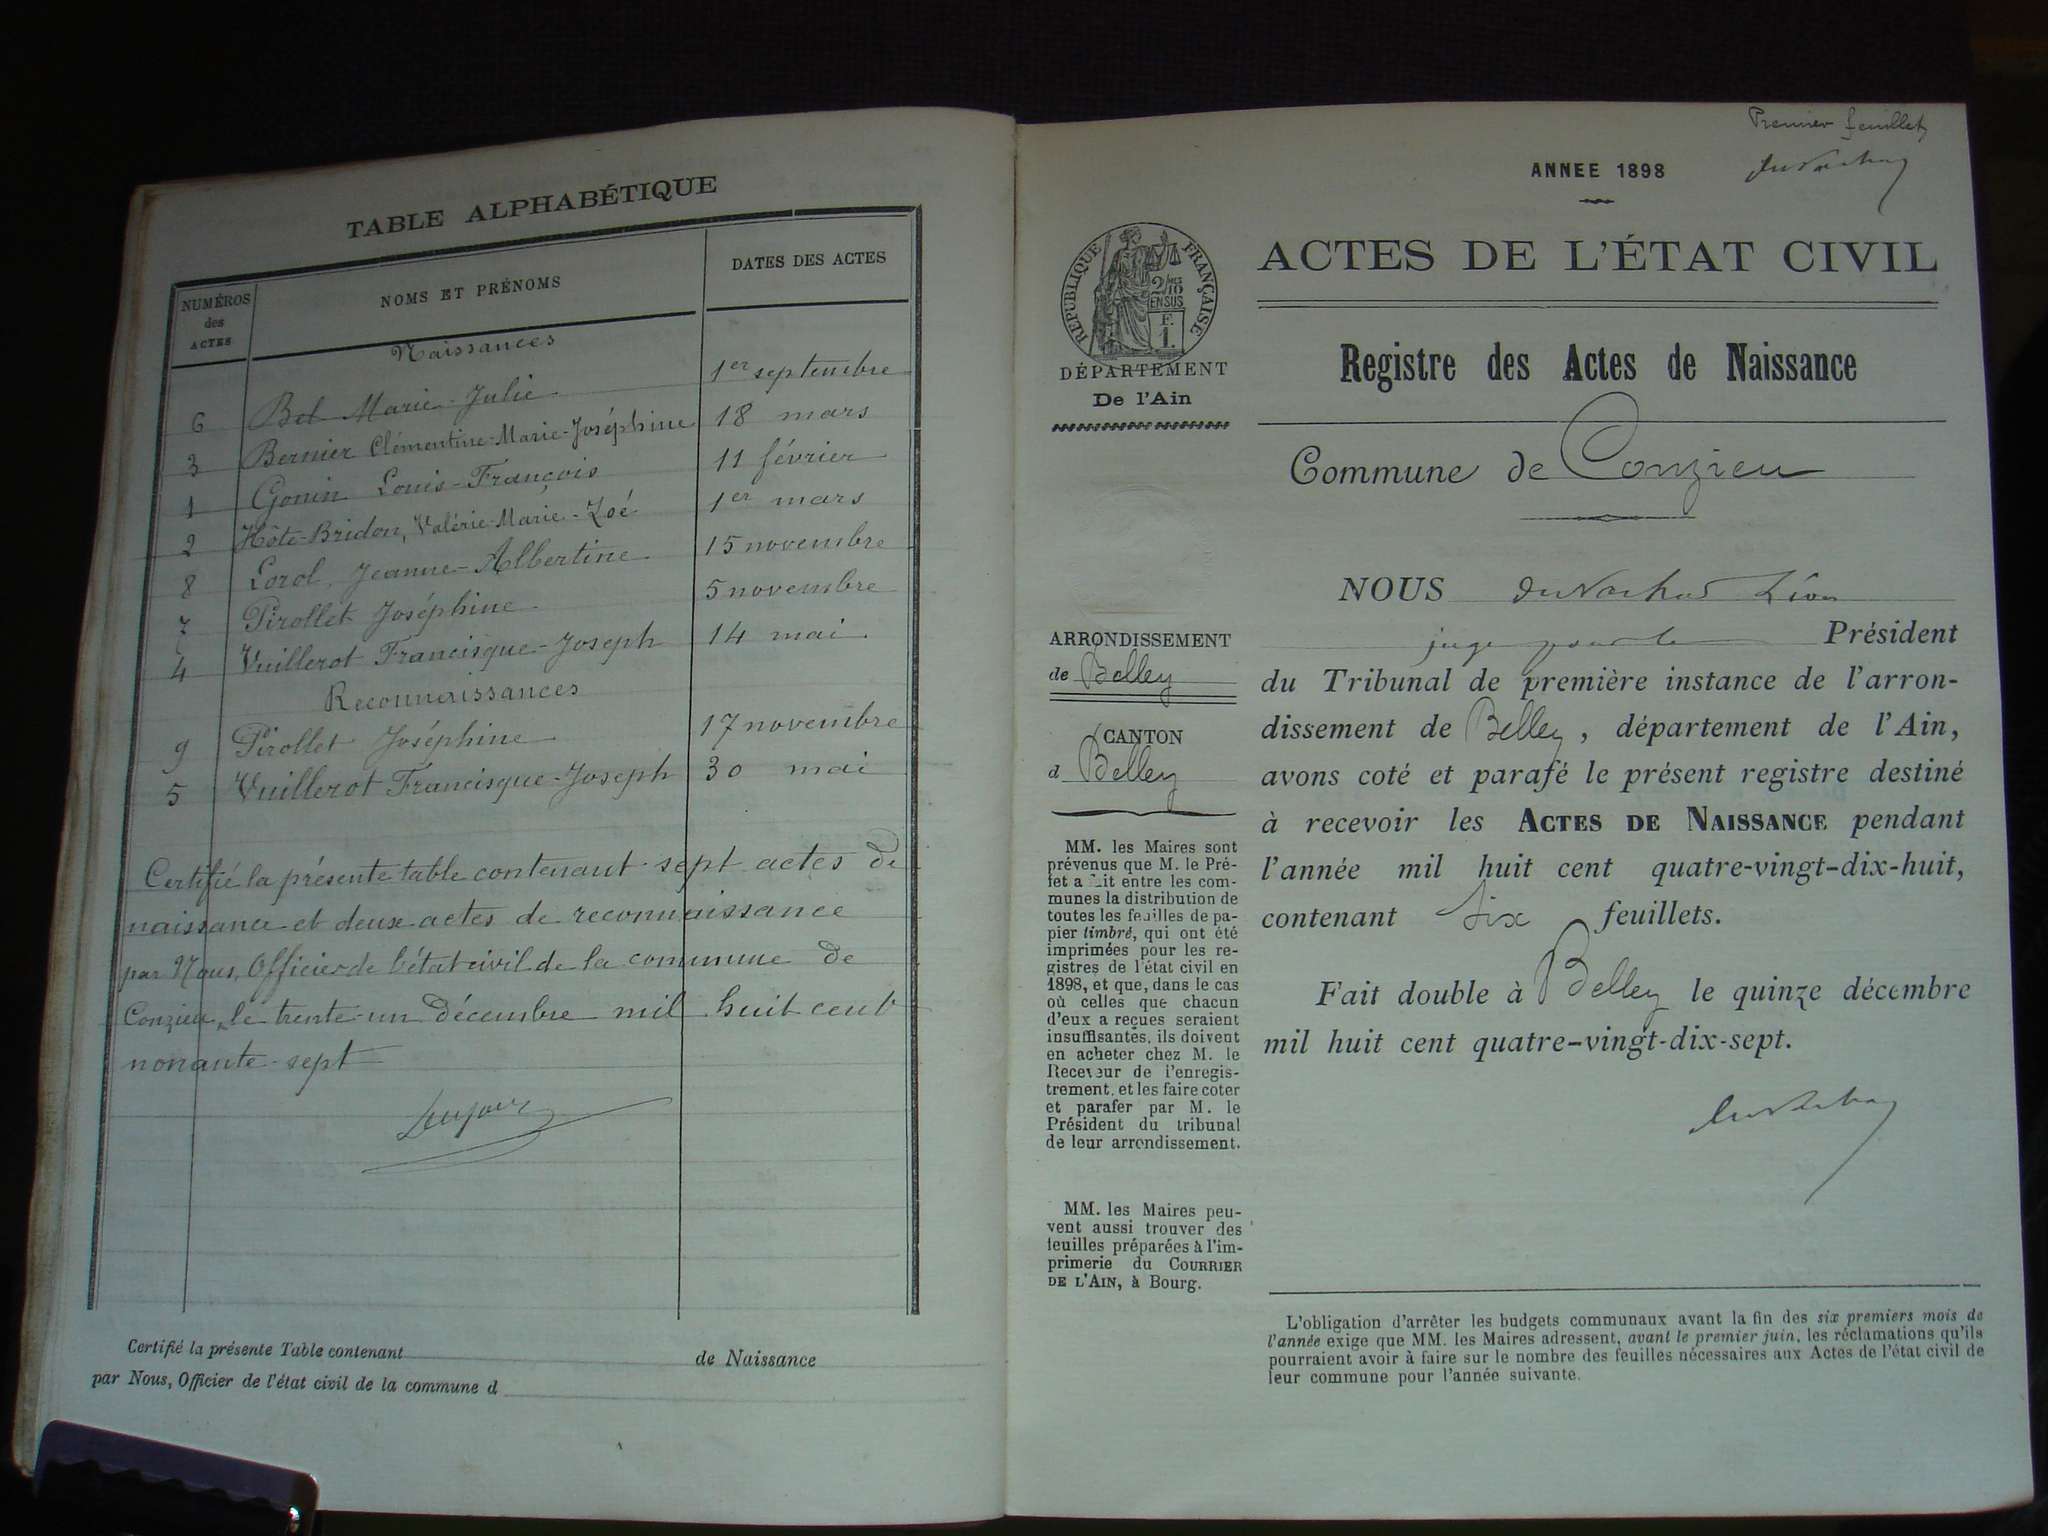 TABLE ALPHABÉTIQUE
NUMÉROS des ACTES
NOMS ET PRÉNOMS
DATES DES ACTES
Naissances
6 Bel Marie-Julie 1er septembre
3 Bernier Clémentine-Marie-Joséphine 18 mars
1 Gonin Louis-François 11 février
2 Hôte-Bridon, Valérie-Marie-Zoé 1er mars
8 Lorol, Jeanne-Albertine 15 novembre
7 Pirollet Joséphine 5 novembre
4 Vuillerot Francisque-Joseph 14 mai
Reconnaissances
9 Pirollet Joséphine 17 novembre
5 Vuillerot Francisque-Joseph 30 mai
Certifié la présente table contenant sept actes de
naissance et deux actes de reconnaissance
par Nous, Officier de l'état civil de la commune de
Conzieu, le trente-un décembre mil huit cent
nonante-sept
Certifié la présente Table contenant de Naissance
par Nous, Officier de l'état civil de la commune d
Premier feuillet
ANNEE 1898
RÉPUBLIQUE FRANÇAISE
2/10 MES
EN SUS
F.
1.
DÉPARTEMENT
De l'Ain
ACTES DE L'ÉTAT CIVIL
Registre des Actes de Naissance
Commune de Conzieu
ARRONDISSEMENT
de Belley
CANTON
d Belley
MM. les Maires sont
prévenus que M. le Pré-
fet a fait entre les com-
munes la distribution de
toutes les feuilles de pa-
pier timbré, qui ont été
imprimées pour les re-
gistres de l'état civil en
1898, et que, dans le cas
où celles que chacun
d'eux a reçues seraient
insuffisantes, ils doivent
en acheter chez M. le
Receveur de l'enregis-
trement, et les faire coter
et parafer par M. le
Président du tribunal
de leur arrondissement.
MM. les Maires peu-
vent aussi trouver des
feuilles préparées à l'im-
primerie du COURRIER
DE L'AIN, à Bourg.
NOUS Léon
juge pour le Président
du Tribunal de première instance de l'arron-
dissement de Belley, département de l'Ain,
avons coté et parafé le présent registre destiné
à recevoir les ACTES DE NAISSANCE pendant
l'année mil huit cent quatre-vingt-dix-huit,
contenant six feuillets.
Fait double à Belley le quinze décembre
mil huit cent quatre-vingt-dix-sept.
L'obligation d'arrêter les budgets communaux avant la fin des six premiers mois de
l'année exige que MM. les Maires adressent, avant le premier juin, les réclamations qu'ils
pourraient avoir à faire sur le nombre des feuilles nécessaires aux Actes de l'état civil de
leur commune pour l'année suivante.